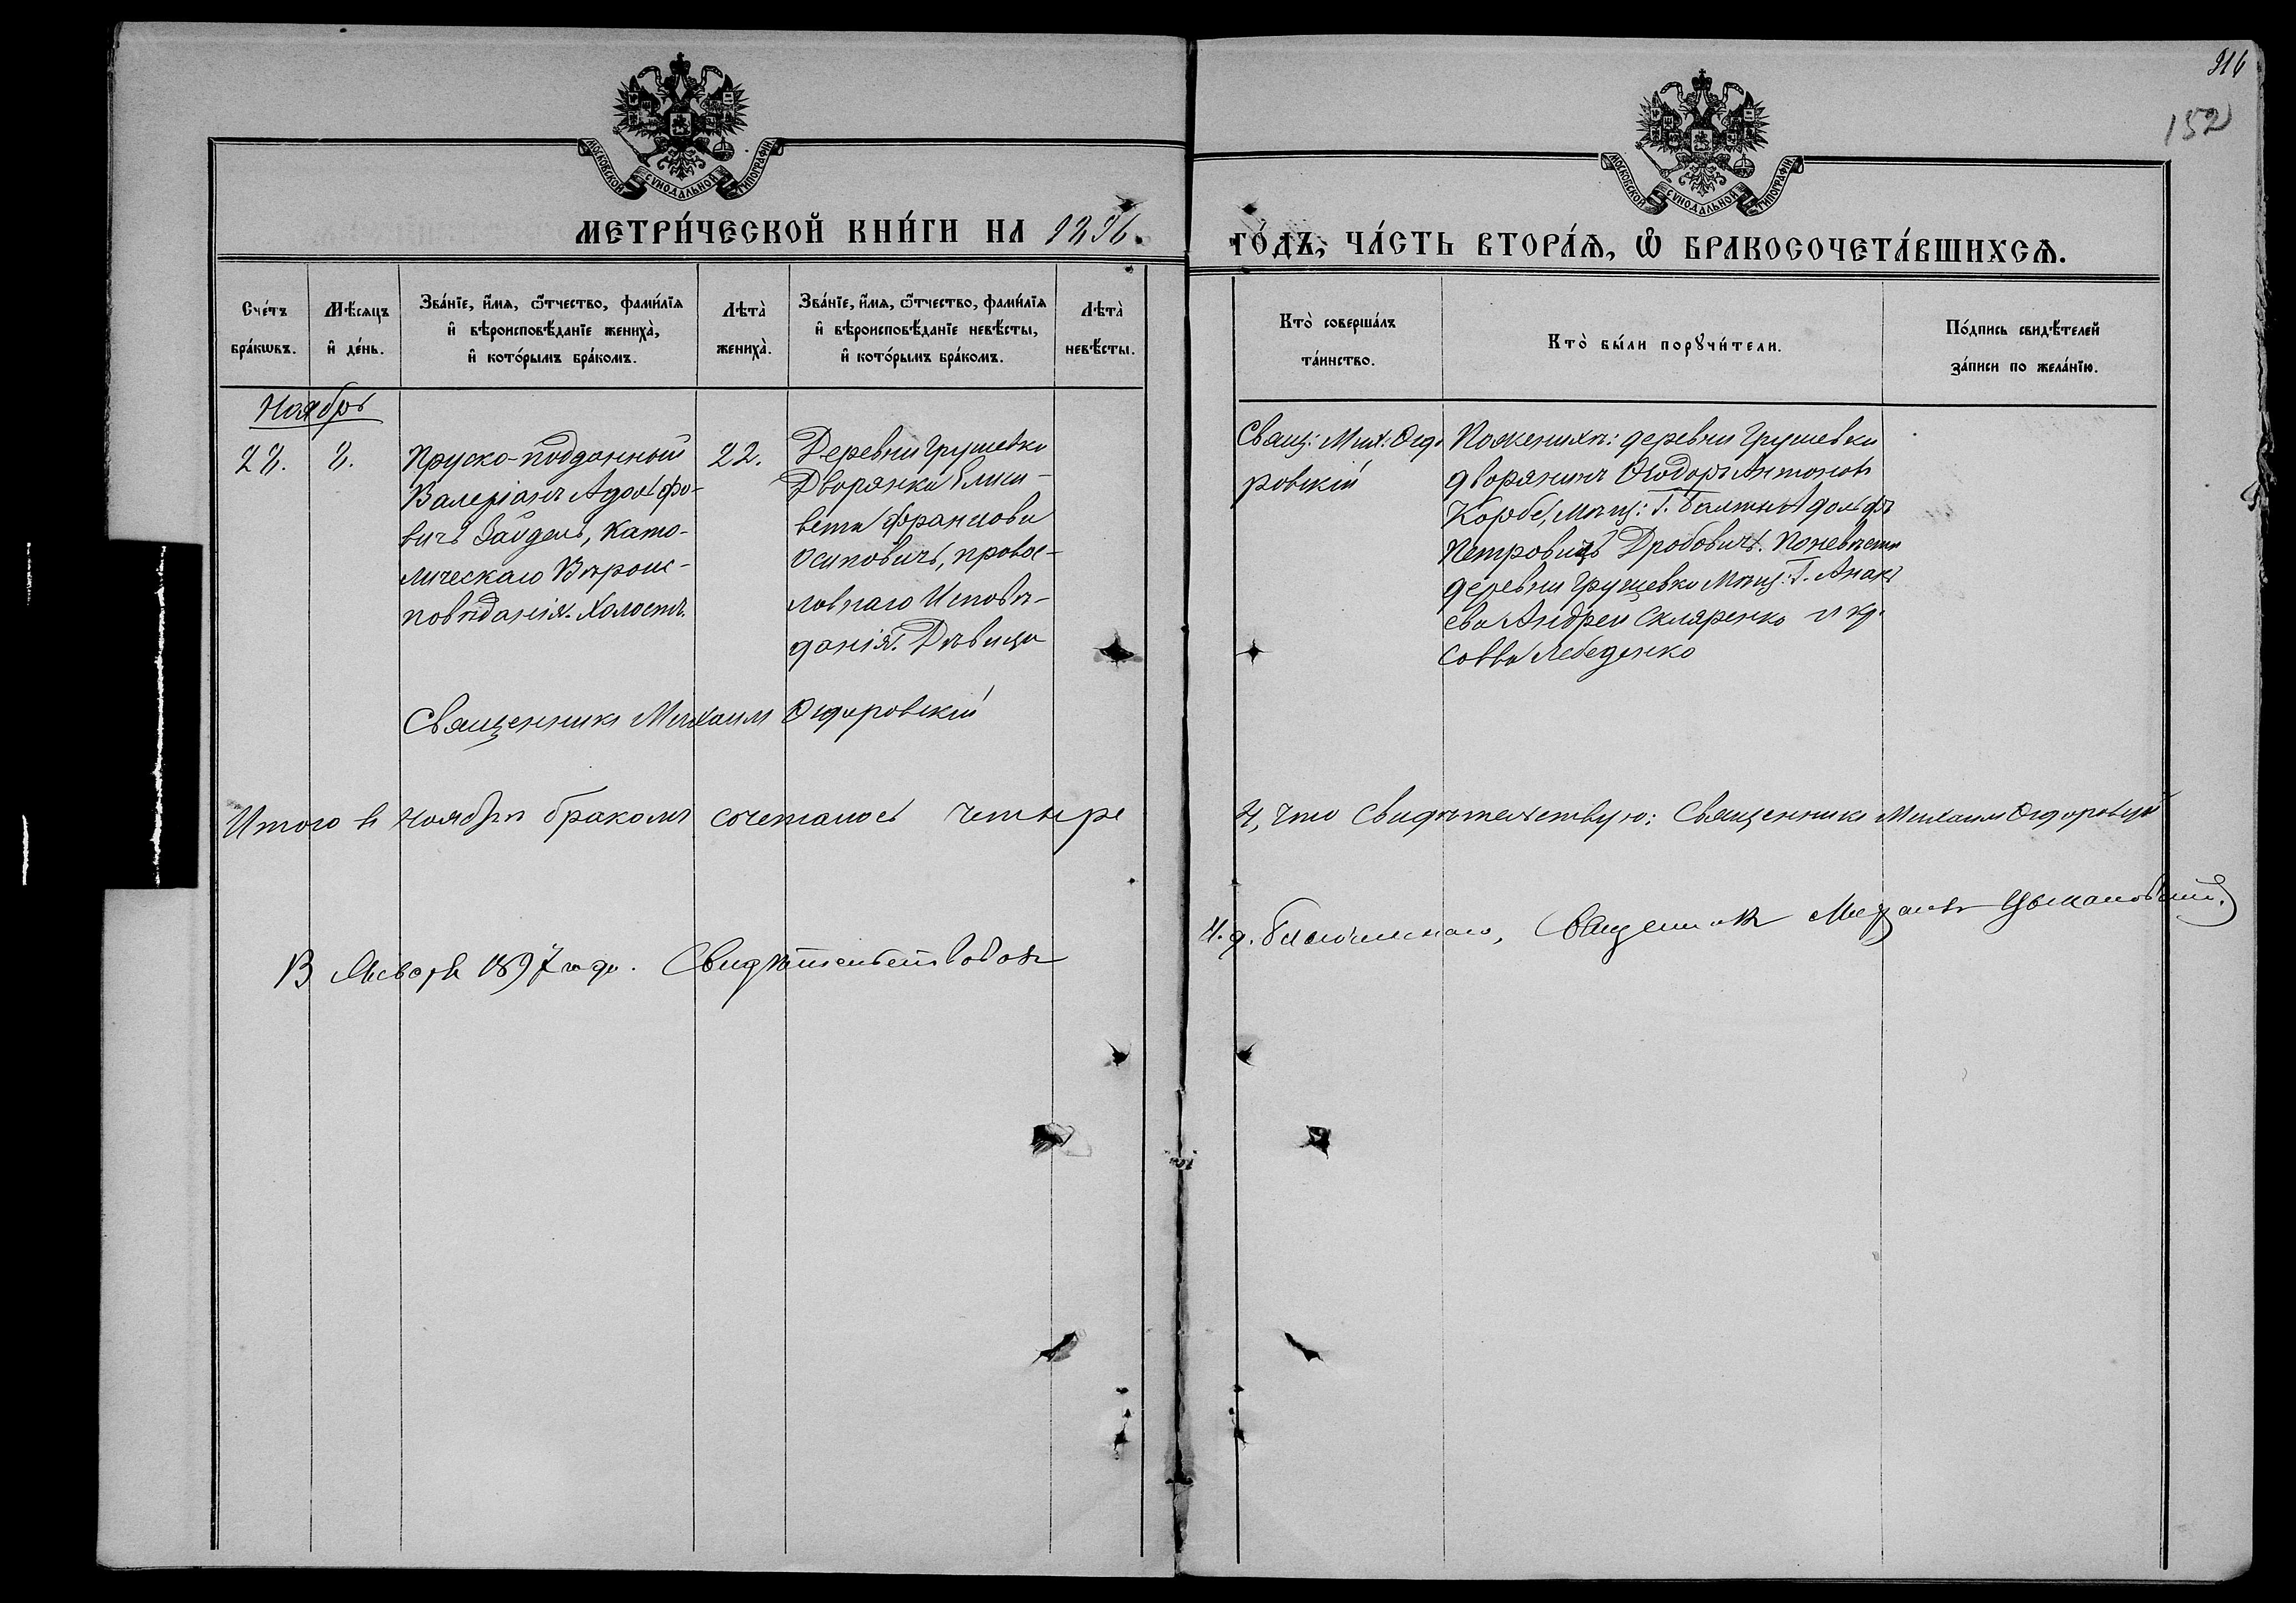 316
152
МОСКОВСКОЙ СѴНОДАЛЬНОЙ ТИПОГРАФІИ
МОСКОВСКОЙ СѴНОДАЛЬНОЙ ТИПОГРАФІИ
МЕТРИ́ЧЕСКОЙ КНИ́ГИ НА 1896.
ГО́ДЪ, ЧА́СТЬ ВТОРА́Ѧ, Ѡ҆ БРАКОСОЧЕТА́ВШИХСѦ.
Сче́тъ
бра́кѡвъ.
Мѣ́сяцъ
и҆ де́нь.
Зва́нїе, и҆́мя, ѻ҆́тчество, фами́лїя
и҆ вѣроисповѣ́данїе жениха̀,
и҆ кото́рымъ бра́комъ.
Лѣта̀
жениха̀.
Зва́нїе, и҆́мя, ѻ҆́тчество, фами́лїя
и҆ вѣроисповѣ́данїе невѣ́сты,
и҆ кото́рымъ бра́комъ.
Лѣта̀
невѣ́сты.
Кто̀ соверша́лъ
та́инство.
Кто̀ бы́ли порꙋчи́тели.
По́дпись свидѣ́телей
за́писи по жела́нїю.
Ноябрь
28.
8.
Пруско-подданный
Валеріанъ Адольфо-
вичъ Зайдель, Като-
лическаго Вѣроис-
повѣданія. Холостъ.
22.
Деревни Грушевки
Дворянка Елиса-
вета Францова
Осиповичъ, правос-
лавнаго Исповѣ-
данія. Дѣвица
Свящ: Мих:
ровскій
По женихѣ: деревни Грушевки
дворянинъ Ѳеодоръ Антоновъ
Корбе, мѣщ: г. Балты Адольфъ
Петровичъ Дробовичъ. По невѣстѣ
деревни Грушевки мѣщ: г. Анань
ева Андрей Скляренко и кр.
Савва Лебеденко
Священникъ Михаилъ
Итого въ ноябрѣ бракомъ сочеталось четыре
4, что свидѣтельствую: Священникъ Михаилъ
В Январѣ 1897 года. Свидѣтельствовалъ
И. д. благочиннаго, Священникъ Михаилъ Цымановскій.